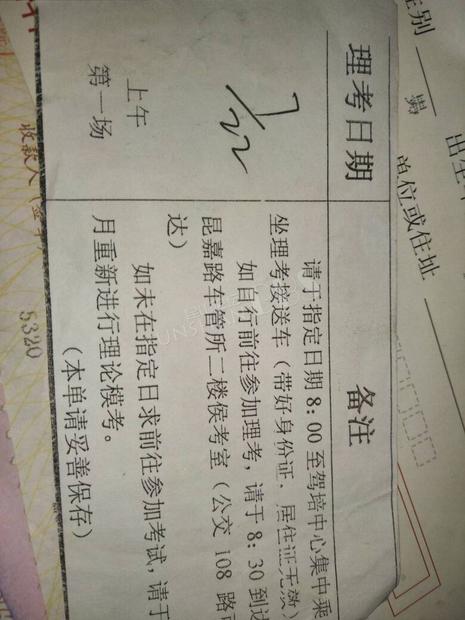 理考日期
备注
7/22
上午
第一场
请于指定日期8:00至驾培中心集中乘
坐理考接送车（带好身份证、居住证无效）
如自行前往参加理考，请于8:30到达
昆嘉路车管所二楼侯考室（公交108路
达）
如未在指定日求前往参加考试，请于
月重新进行理论模考。
（本单请妥善保存）
性别
男
单位或住址
收款人
5320